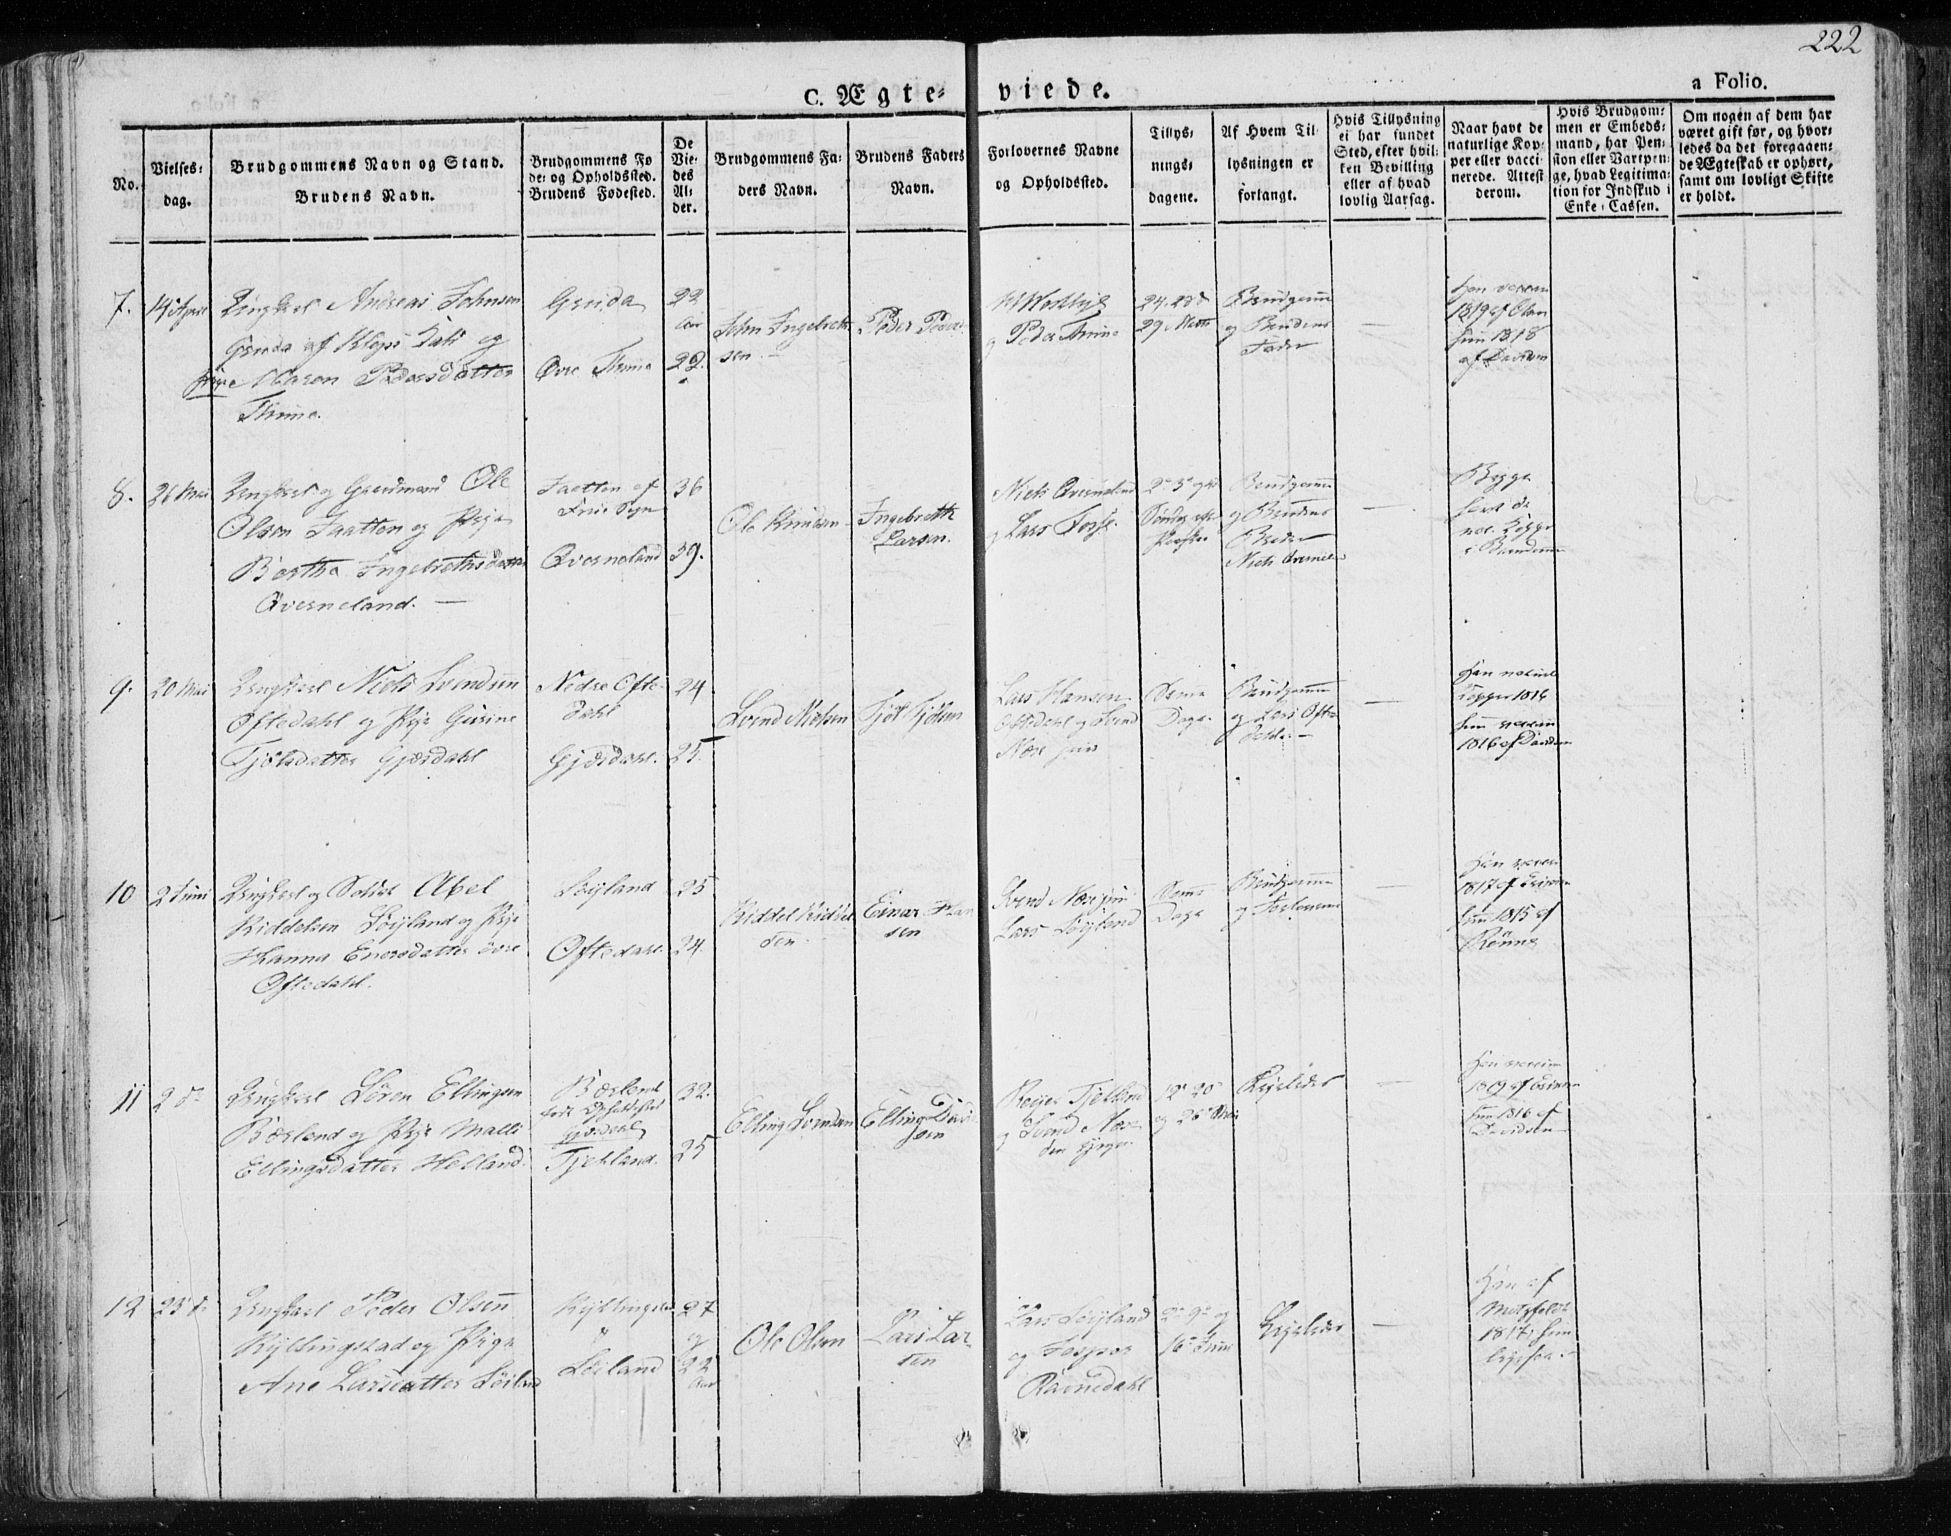 222
C. Ægte-
viede.
a Folio.
No.
Vielses-
dag.
Brudgommens Navn og Stand.
Brudens Navn.
Brudgommens Fø
de- og Opholdssted.
Brudens Fødested.
De
Vie-
des
Al-
der.
Brudgommens Fa-
ders Navn.
Brudens Faders
Navn.
Forlovernes Navne
og Opholdssted.
Tillys-
nings-
dagene.
Af Hvem Til-
lysningen er
forlangt.
Hvis Tillysning
ei har fundet
Sted, efter hvil-
ken Bevilling
eller af hvad
lovlig Aarsag.
Naar havt de
naturlige Kop-
per eller vacci-
nerede. Attest
derom.
Hvis Brudgom-
men er Embeds-
mand, har Pen-
sion eller Vartpen-
ge, hvad Legitima-
tion for Indskud i
Enke-Cassen.
Om nogen af dem har
været gift før, og hvor-
ledes da det foregaaen-
de Ægteskab er ophørt,
samt om lovligt Skifte
er holdt.
7.
14 April
Ungkarl Andreas Johnsen
Gruda af Klepp og
Pige Maren Pedersdatter
Thime.
Gruda
Øvre Thime
22
Aar
22.
John Ingebreth
sen.
Peder Peders
og Peder Thime
24. 28
29 Marts
Brudgom
og Brudens
Fader
1819 af
hun 1818
af
8.
26 Mai
Ungkarl og Gaardmand Ole
Olsen Taatten og Pige
Bertha Ingebrethsdatter
Qverneland.
Taatten af
Qverneland
36
39.
Ole Knudsen
Ingebreth
Larsen.
Niels Qverneland
og Lars Fosse.
2 3
Brudgom
og Brudens
Broder
Niels Qvernela
Begge
9.
20 Mai
Ungkarl Niels Svendsen
Oftedahl og Pige Gurine
Tjølsdatter Gjesdahl
Nedre Ofte-
dahl
Gjesdahl.
24
25.
Svend Nielsen
Tjøl Tjølsen
Lars Hansen
Oftedahl og Svend
Næse jun
Samme
Dage.
Brudgom
og Lars Ofte
dahl
Han naturl
Kopper 1814
hun vaccin
1816 af
10
2 Juni
Ungkarl og Soldat Abel
Riddelsen Søyland og Pige
Hanna Enersdatter øvre
Oftedahl.
Søyland
Oftedahl.
25
24.
Riddel Riddel
sen.
Einar Han
sen
Svend Næse jun
Lars Søyland
Samme
Dage
Brudgom
og Forloverne
Han vacci
1817 af
hun 1815 af
Rønne
11
2 do
Ungkarl Søren Ellingsen
Bærland og Pige Malli
Ellingsdatter Helland.
Bærland
Gjesdahl
Tjelland.
32.
25
Elling Svendsen
Elling David
sen
Reier Tjelland
og Svend Næse
den yngre
12 20
og 26 Mai
Ligeledes
Han vaccin
1809 af
hun 1816 af
Davidsen
12
23 do
Ungkarl Peder Olsen
Kyllingstad og Pige
Ane Larsdatter Søiland
Kyllingstad
Søiland
27
og
22
Aar
Ole Olsen
Lars Lar-
sen
Lars Søyland
og Jesper
Ravnedahl
2 9 og
16 Juni
Ligeledes
Han af
Motzfeldt
1817, hun
ligesaa.